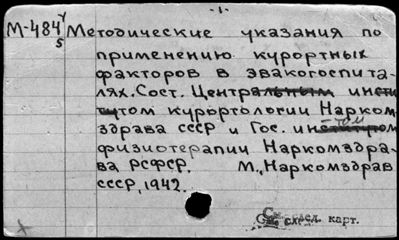 -1-
М-484 5 Методические указания по
применению курортных
факторов в эвакогоспита-
лях. Сост. Центральным инсти
тутом курортологии Нарком
здрава СССР и Гос. институтом
физиотерапии Наркомздра-
ва РСФСР. М., Наркомздрав
СССР, 1942.
См. след. карт.